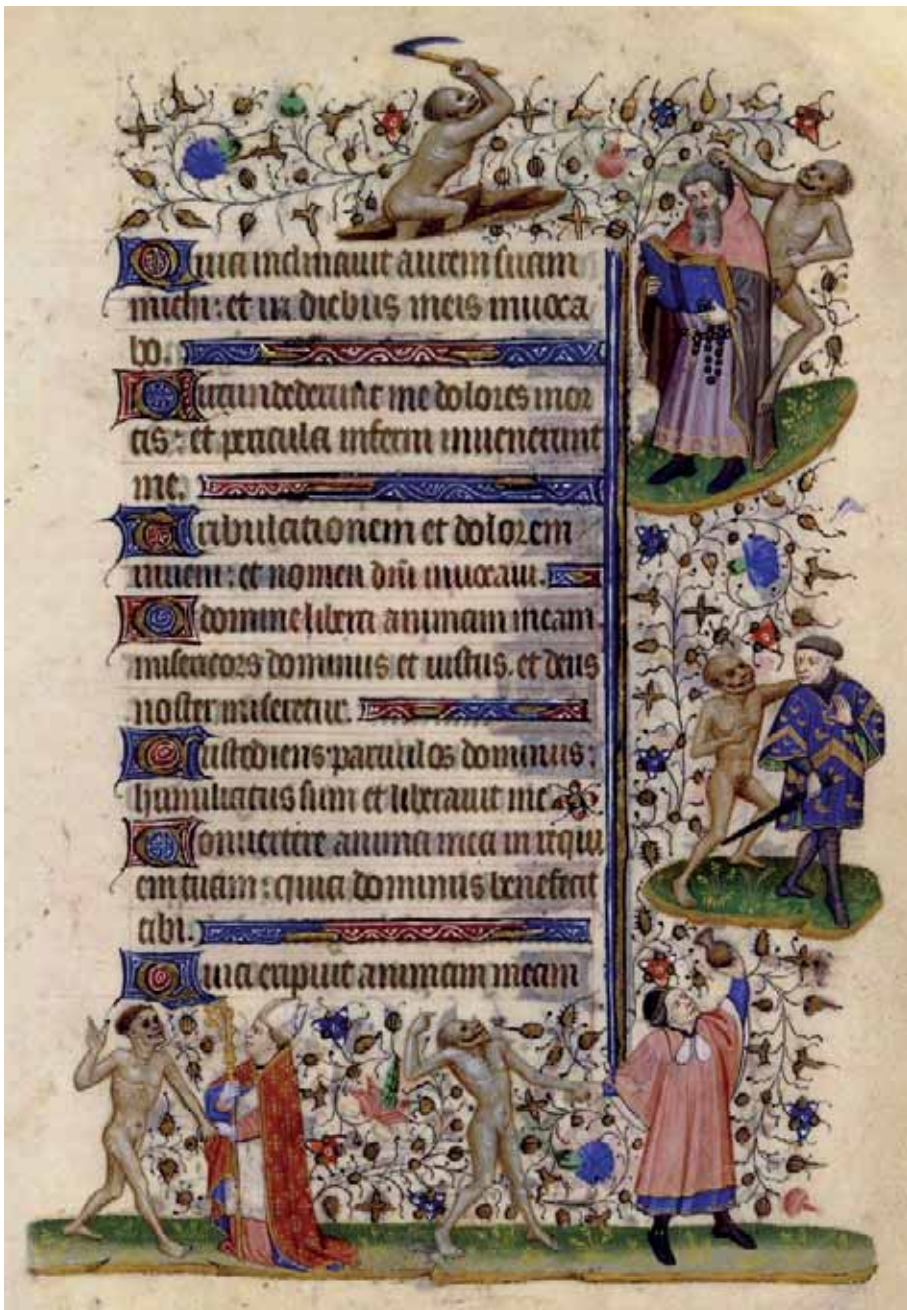 Quia inclinauit aurem suam
michi: et in diebus meis inuoca
bo.
Circundederunt me dolores mor
tis: et pericula inferni inuenerunt
me.
Tribulationem et dolorem
inueni: et nomen dñi inuocaui.
O domine libera animam meam
misericors dominus et iustus. et deus
noster miseretur.
Custodiens paruulos dominus:
humiliatus sum et liberauit me
Conuertere anima mea in requi
em tuam: quia dominus benefecit
tibi.
Quia eripuit animam meam